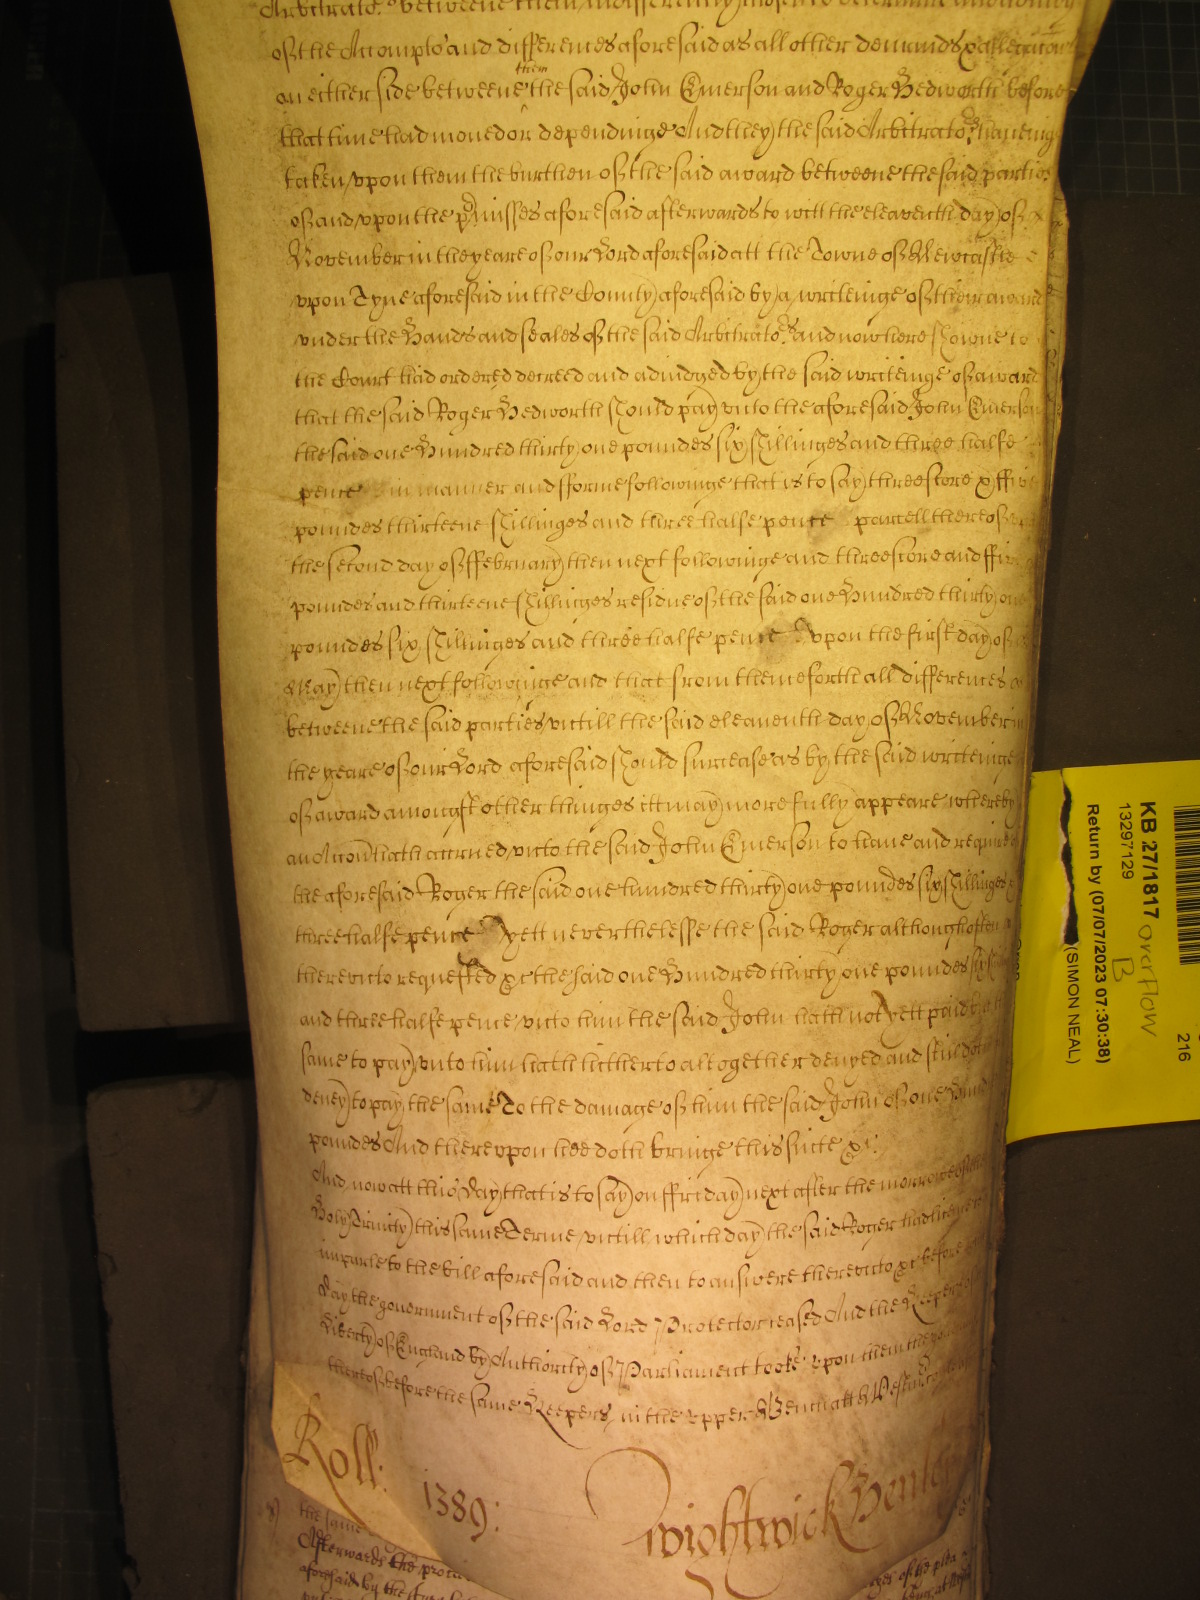 Arbitrato.rs betweene them indifferently chosen to determine
of the Accompts and differences aforesaid as all other demands
on either side betweene them the said John Emerson and Roger Hedworth before
that time had moued or dependinge And they the said Arbitrato.rs haueing
taken vpon them the burthen of the said award betweene the said parties
of and vpon the p.rmisses aforesaid afterwards to witt the eleaventh day of
November in the yeare of our Lord aforesaid att the Towne of Newcastle
vpon Tyne aforesaid in the County aforesaid by a writeinge of their award
under the Hands and seales of the said Arbitrato.rs and now here showne to
the Court had ordered decreed and adiudged by the said writeinge of award
that the said Roger Hedworth should pay vnto the aforesaid John Emerson
the said one Hundred thirty one poundes six shillinges and three halfe
pence in manner and fforme followinge that is to say threescore & ffive
poundes thirteene shillinges and three halfe pence parcell thereof
the second day of ffebruary then next followinge and threescore and ffive
poundes and thirteene shillinges residue of the said one Hundred thirty one
poundes six shillinges and three halfe pence vpon the first day of
May then next followinge and that from themeforth all differences
betweene the said parties vntill the said eleauenth day of November in
the yeare of our Lord aforesaid should surcease as by the said writeinge
of award amongst other thinges itt may more fully appeare whereby
an Accon hath accrued vnto the said John Emerson to haue and require
the aforesaid Roger the said one hundred thirty one poundes six shillinges
three halfe pence yett neverthelesse the said Roger although often
therevnto requested &c the said one Hundred thirty one poundes six
and three halfe pence vnto him the said John hath not yett paid but
same to pay vnto him hath hitherto altogether denyed and still doth
deney to pay the same To the damage of him the said John of one Hund
poundes And therevpon hee doth bringe this suite &c.
And now att this Day that is to say on ffriday next after the morrow of the
Holy Trinity this same Terme vntill which day the said Roger had licence
imparle to the bill aforesaid and then to answere therevnto &c before
day the government of the said Lord Protector ceased And the Keepers
Liberty of England by Authority of Parliament tooke vpon them the
thereof before the same Keepers in the vpper Bench att Westm
Roll: 1389: Wightwick Henley
the same
Afterwards the proces
aforesaid by the
of the plea
KB 27/1817 overflow
B
13297129
Return by (07/07/2023 07:30:38)
(SIMON NEAL)
216